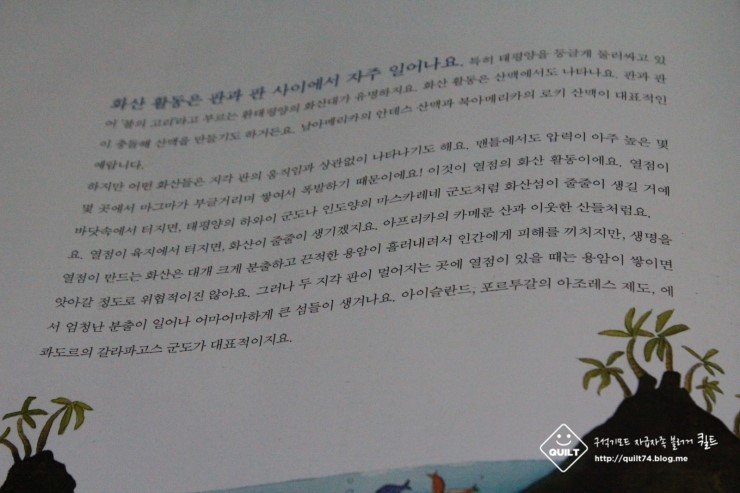 화산 활동은 판과 판 사이에서 자주 일어나요. 특히 태평양을 둥글게 둘러싸고 있
어 '불의 고리'라고 부르는 환태평양의 화산대가 유명하지요. 화산 활동은 산맥에서도 나타나요. 판과 판
이 충돌해 산맥을 만들기도 하거든요. 남아메리카의 안데스 산맥과 북아메리카의 로키 산맥이 대표적인
예랍니다.
하지만 어떤 화산들은 지각 판의 움직임과 상관없이 나타나기도 해요. 맨틀에서도 압력이 아주 높은 몇
몇 곳에서 마그마가 부글거리며 쌓여서 폭발하기 때문이에요! 이것이 열점의 화산 활동이에요. 열점이
바닷속에서 터지면, 태평양의 하와이 군도나 인도양의 마스카레네 군도처럼 화산섬이 줄줄이 생길 거예
요. 열점이 육지에서 터지면, 화산이 줄줄이 생기겠지요. 아프리카의 카메룬 산과 이웃한 산들처럼요.
열점이 만드는 화산은 대개 크게 분출하고 끈적한 용암이 흘러내려서 인간에게 피해를 끼치지만, 생명을
앗아갈 정도로 위협적이진 않아요. 그러나 두 지각 판이 멀어지는 곳에 열점이 있을 때는 용암이 쌓이면
서 엄청난 분출이 일어나 어마어마하게 큰 섬들이 생겨나요. 아이슬란드, 포르투갈의 아조레스 제도, 에
콰도르의 갈라파고스 군도가 대표적이지요.
QUILT
구석기모드 자급자족 블러거 퀼트
http://quilt74.blog.me